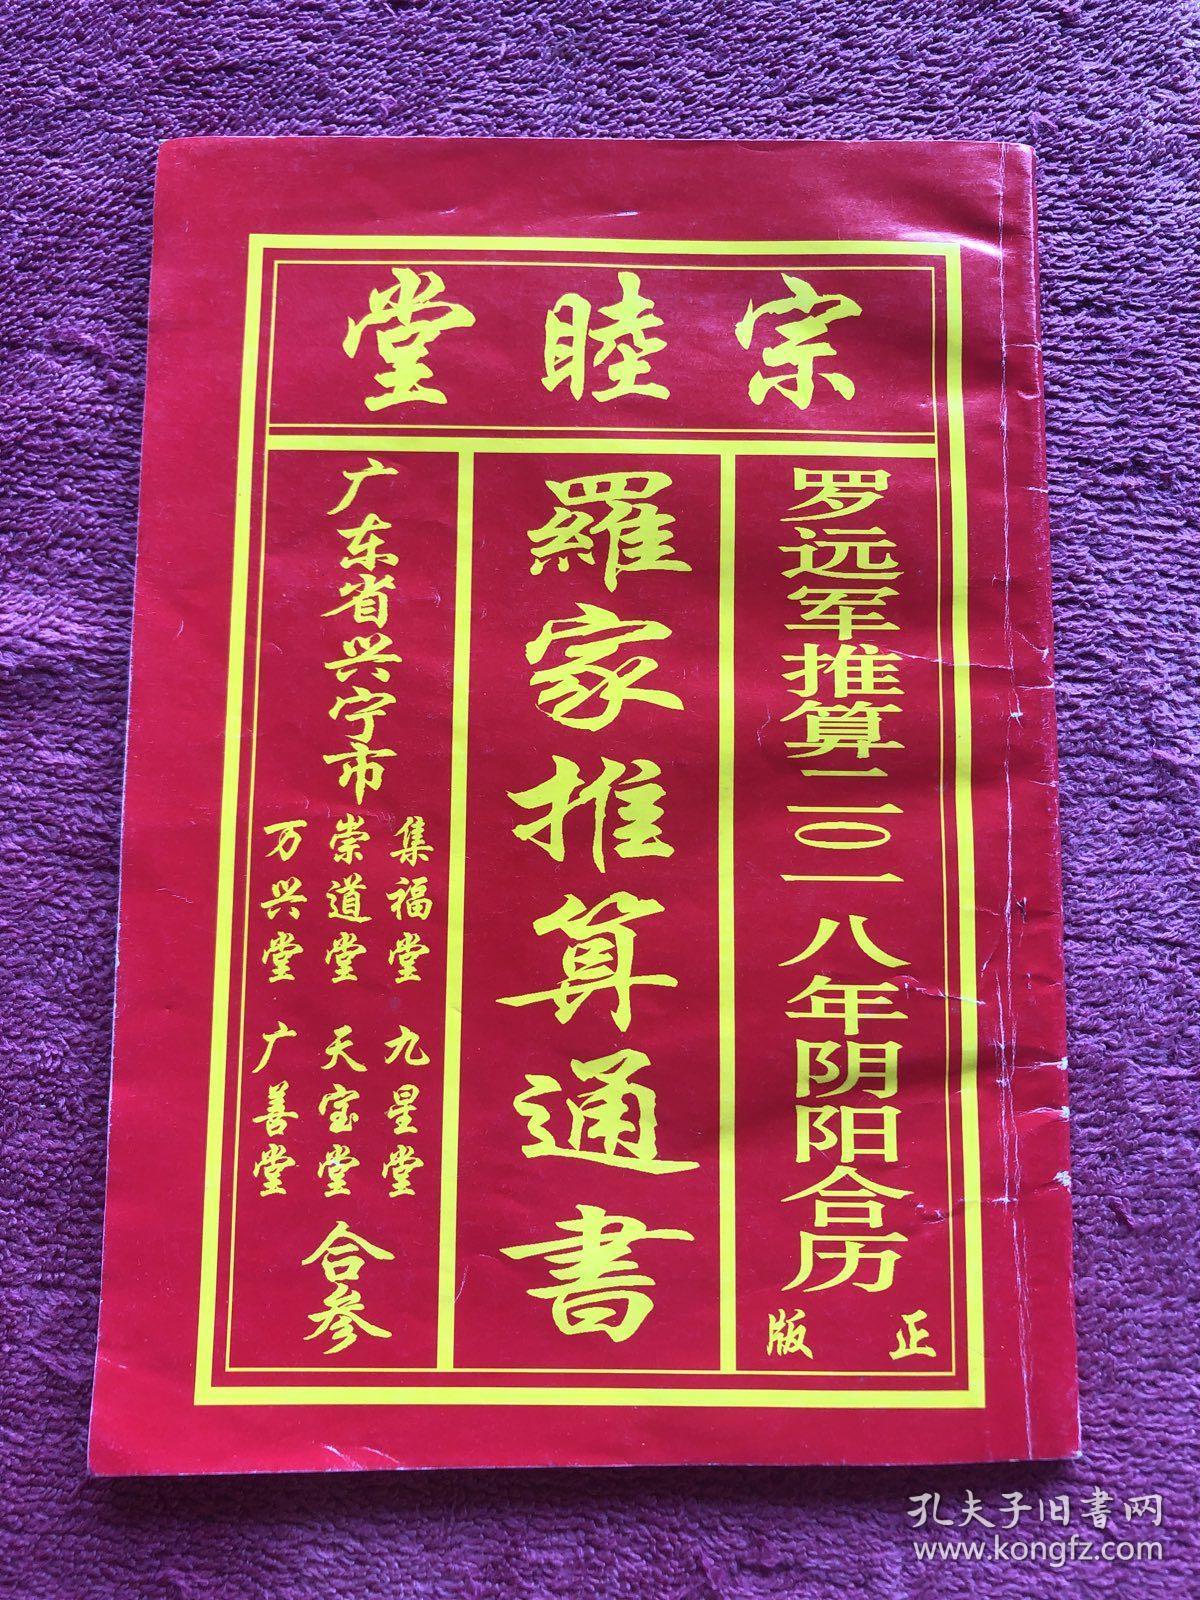 宗睦堂
罗远军推算二〇一八年阴阳合历
正版
羅家推算通書
广东省兴宁市
集福堂 九星堂
崇道堂 天宝堂
万兴堂 广善堂
合参
孔夫子旧书网
www.kongfz.com